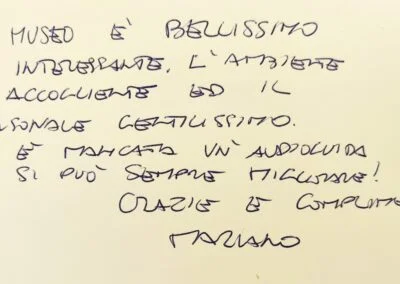 MUSEO È BELLISSIMO
INTERESSANTE. L'AMBIENTE
ACCOGLIENTE ED IL
SONALE GENTILISSIMO.
È MANCATA UN'AUDIOGUIDA
SI PUÒ SEMPRE MIGLIORARE!
GRAZIE E COMPLIME
MARIANO